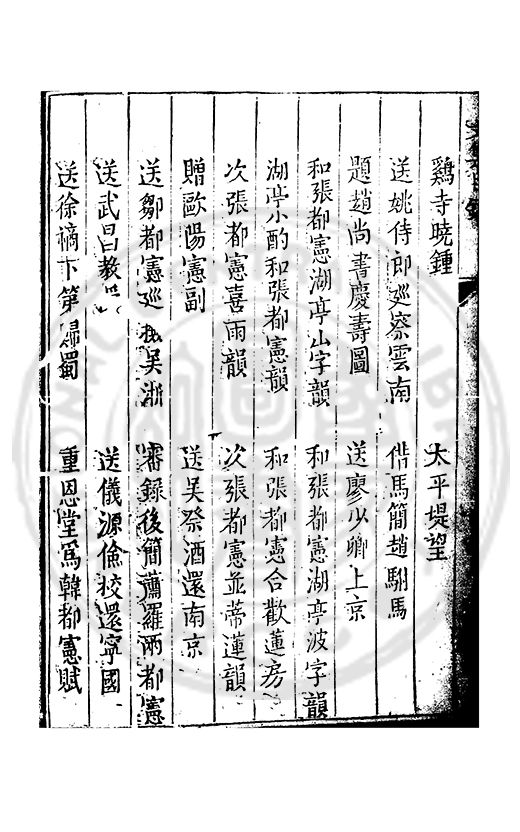 鷄寺曉鍾　太平堤望
送姚侍郎巡察雲南　借馬簡趙駙馬
題趙尚書慶壽圖　送廖少卿上京
和張都憲湖亭山字韻　和張都憲湖亭波字韻
湖亭小酌和張都憲韻　和張都憲合歡蓮房
次張都憲喜雨韻　次張都憲並蒂蓮韻
贈歐陽憲副　送吳祭酒還南京
送鄒都憲巡撫吳浙　審錄後簡蕭羅兩都憲
送武昌教　送儀源倫校還寧國
送徐楠下第歸蜀　重恩堂爲韓都憲賦